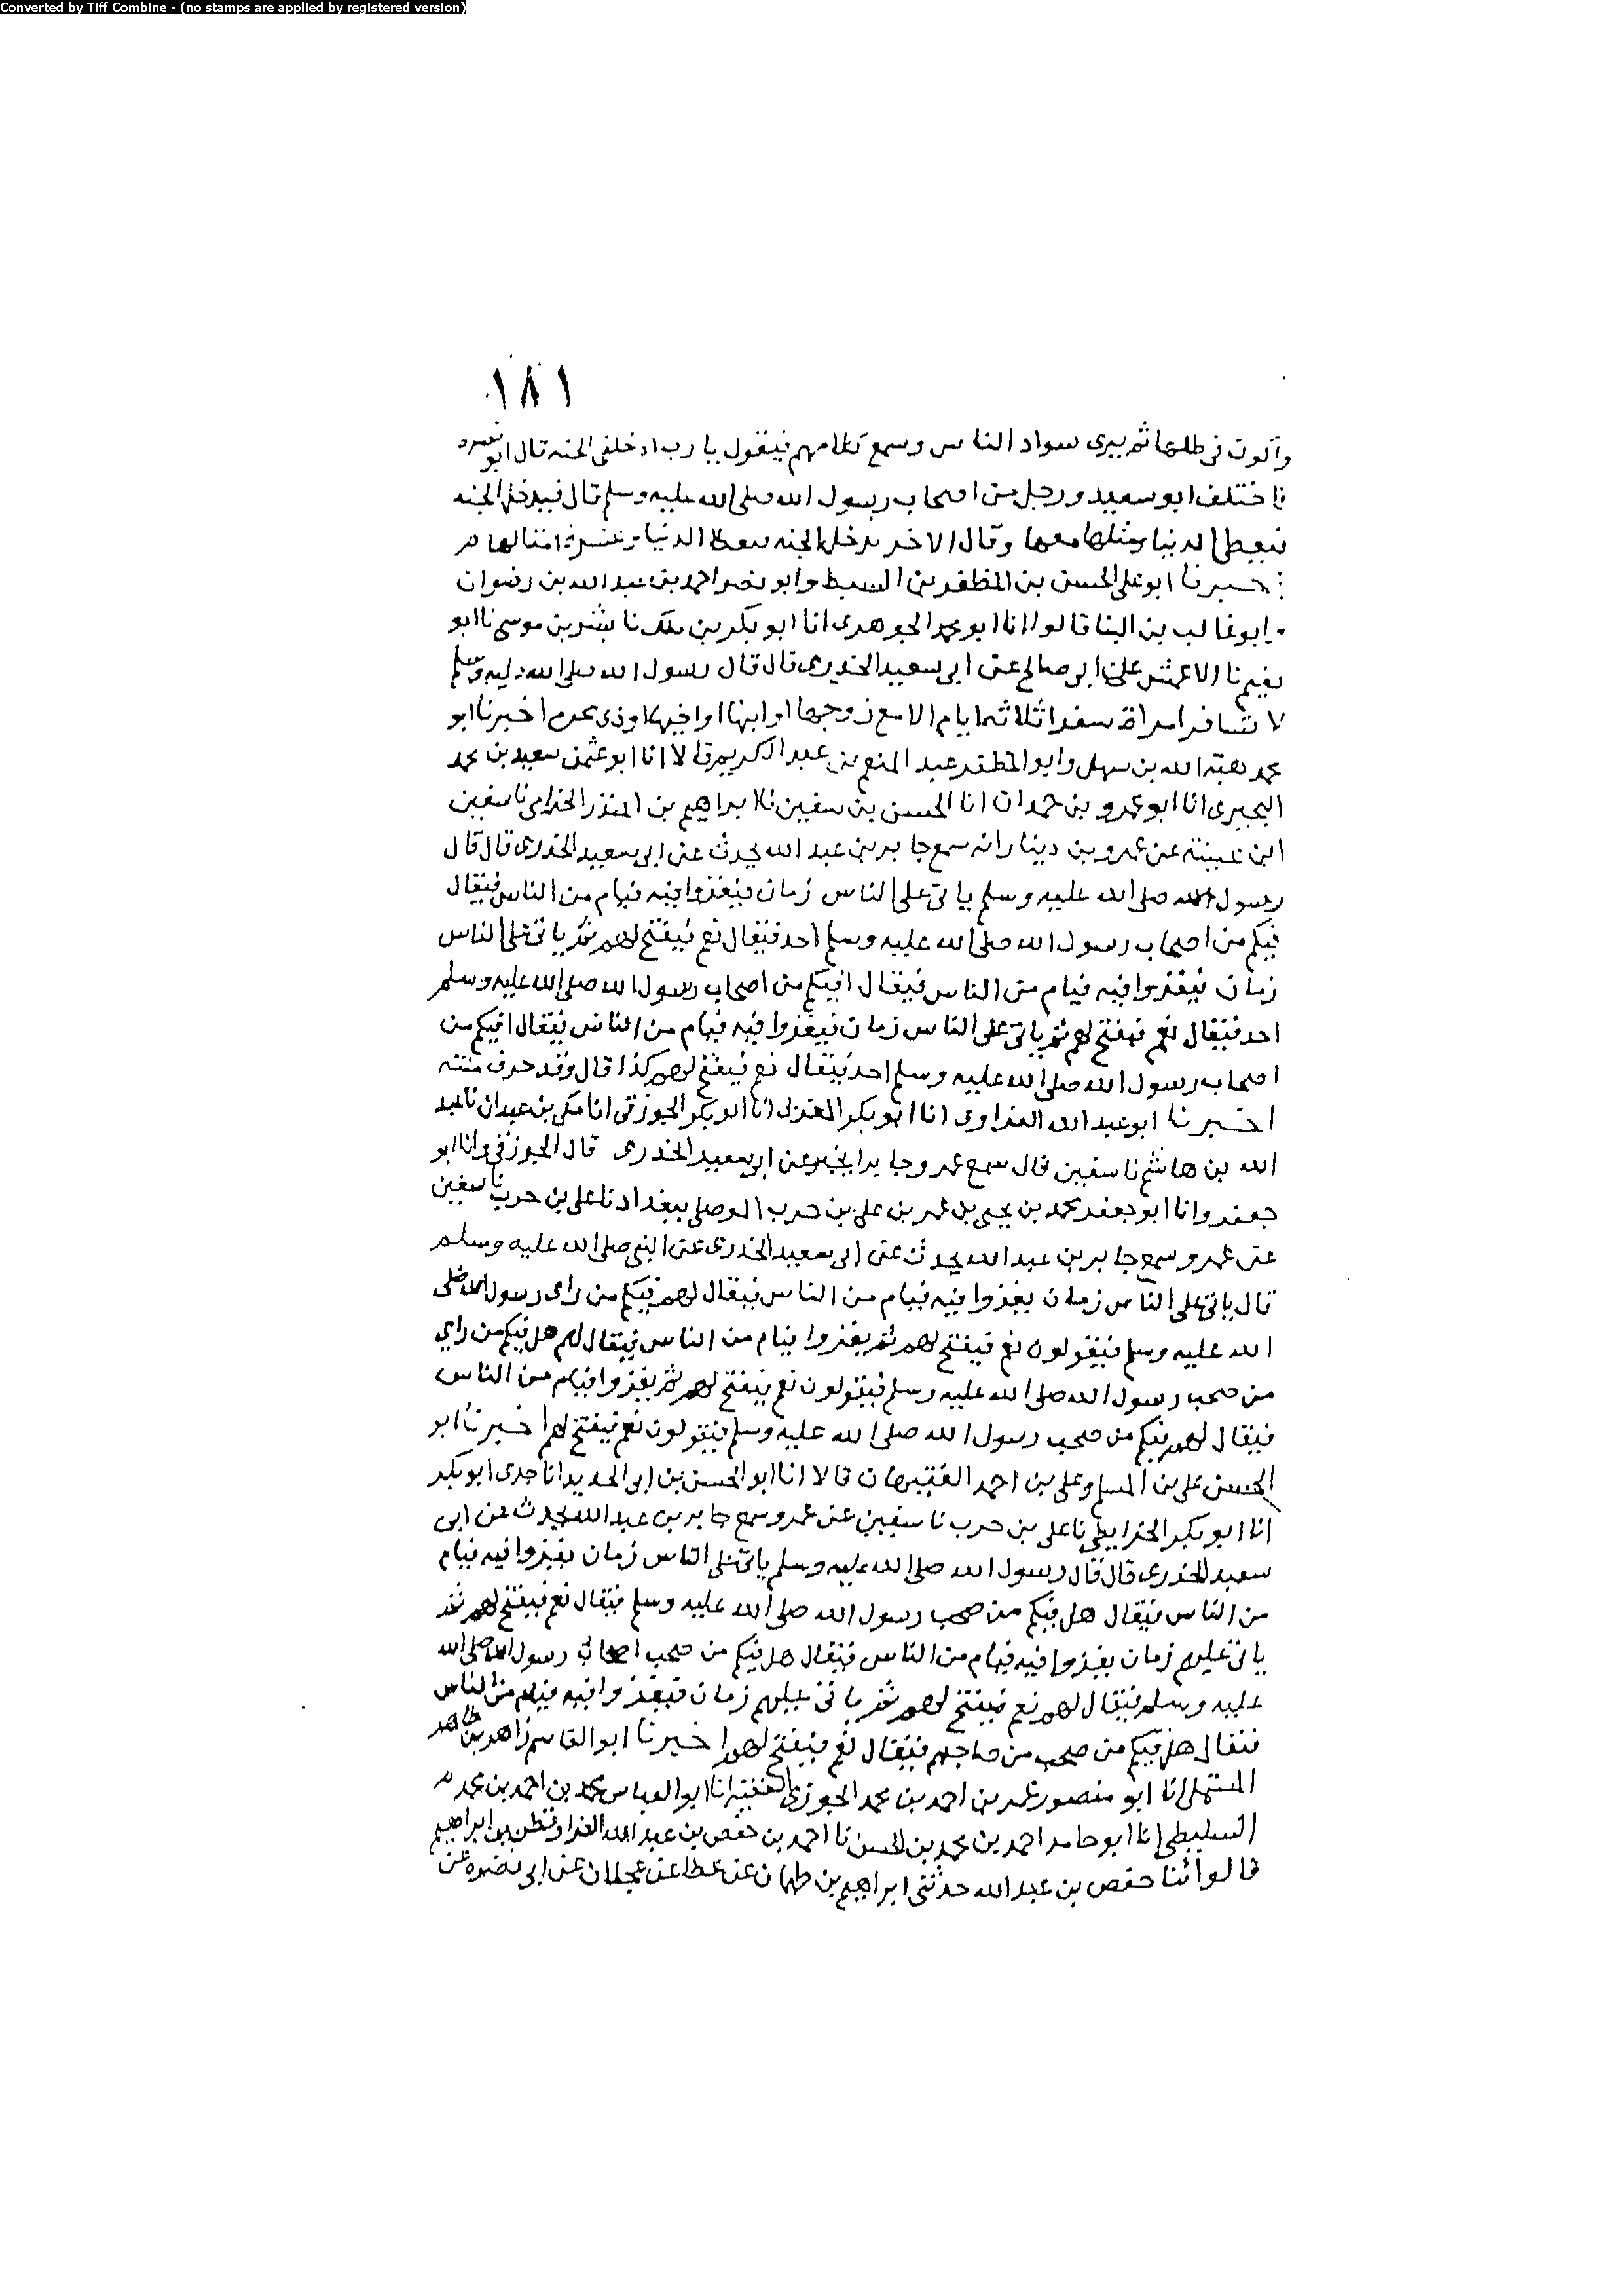 Converted by Tiff Combine - (no stamps are applied by registered version)
١٨١
واكون فى ظلها ثم يرى سواد الناس وسمع كلامهم فيقول يا رب ادخلنى الجنه قال ابو نضره
فاختلف ابو سعيد ورجل من اصحاب رسول الله صلى الله عليه وسلم قال فيدخل الجنه
فيعطى الدنيا ومثلها معها وقال الاخر يدخل الجنه فيعطا الدنيا وعشرة امثالها
اخبرنا ابو على الحسن بن المظفر بن السبط وابو نصر احمد بن عبد الله بن رضوان
وابو غالب بن البنا قالوا انا ابو محمد الجوهرى انا ابو بكر بن ملك نا بشر بن موسى نا ابو
نعيم نا الاعمش عن ابى صالح عن ابى سعيد الخدرى قال قال رسول الله صلى الله عليه وسلم
لا تسافر امراة سفرا ثلاثه ايام الا مع زوجها او ابنها او اخيها او ذى محرم اخبرنا ابو
محمد هبة الله بن سهل وابو المظفر عبد المنعم بن عبد الكريم قالا انا ابو عثمن سعيد بن محمد
البحيرى انا ابو عمرو بن حمدان انا الحسن بن سفين نا ابراهيم بن المنذر الحزامى نا سفين
ابن عيينة عن عمرو بن دينار انه سمع جابر بن عبد الله يحدث عن ابى سعيد الخدرى قال قال
رسول الله صلى الله عليه وسلم ياتى على الناس زمان فيغزوا فيه فيام من الناس فيقال
فيكم من اصحاب رسول الله صلى الله عليه وسلم احد فيقال نعم فيفتح لهم ثم ياتى على الناس
زمان فيغزوا فيه فيام من الناس فيقال افيكم من اصحاب رسول الله صلى الله عليه وسلم
احد فيقال نعم فيفتح لهم ثم ياتى على الناس زمان فيغزوا فيه فيام من الناس فيقال افيكم من
اصحاب رسول الله صلى الله عليه وسلم احد فيقال نعم فيفتح لهم كذا قال وقد حرف متنه
اخبرنا ابو عبد الله الفراوى انا ابو بكر المغربى انا ابو بكر الجوزقى انا مكى بن عبدان نا عبد
الله بن هاشم نا سفين قال سمع عمرو جابرا يخبر عن ابى سعيد الخدرى قال الجوزقى وانا ابو
جعفر وانا ابو جعفر محمد بن يحيى بن عمر بن على بن حرب الموصلى ببغداد نا على بن حرب نا سفين
عن عمرو سمع جابر بن عبد الله يحدث عن ابى سعيد الخدرى عن النبى صلى الله عليه وسلم
قال ياتى على الناس زمان يغزوا فيه فيام من الناس فيقال لهم فيكم من راى رسول الله صلى
الله عليه وسلم فيقولون نعم فيفتح لهم ثم يغزوا فيام من الناس فيقال لهم هل فيكم من راى
من صحب رسول الله صلى الله عليه وسلم فيقولون نعم فيفتح لهم ثم يغزوا فيام من الناس
فيقال لهم فيكم من صحب رسول الله صلى الله عليه وسلم فيقولون نعم فيفتح لهم اخبرنا ابو
الحسن على بن المسلم وعلى بن احمد الفقيهان قالا انا ابو الحسن بن ابى الحديد انا جدى ابو بكر
انا ابو بكر الخرايطى نا على بن حرب نا سفين عن عمرو سمع جابر بن عبد الله يحدث عن ابى
سعيد الخدرى قال قال رسول الله صلى الله عليه وسلم ياتى على الناس زمان يغزوا فيه فيام
من الناس فيقال هل فيكم من صحب رسول الله صلى الله عليه وسلم فيقال نعم فيفتح لهم ثم
ياتى عليهم زمان يغزوا فيه فيام من الناس فيقال هل فيكم من صحب اصحاب رسول الله صلى الله
عليه وسلم فيقال لهم نعم فيفتح لهم ثم ياتى عليهم زمان فيغزوا فيه فيام من الناس
فيقال هل فيكم من صحب من صاحبهم فيقال نعم فيفتح لهم اخبرنا ابو القاسم زاهر بن طاهر
المستملى انا ابو منصور عمر بن احمد بن محمد الجورى الفقيه انا ابو العباس محمد بن احمد بن محمد
السليطى انا ابو حامد احمد بن محمد بن الحسن نا احمد بن حفص بن عبد الله الفرا وقطن بن ابراهيم
قالوا ثنا حفص بن عبد الله حدثنى ابراهيم بن طهمان عن عطا عن عجلان عن ابى نضره عن